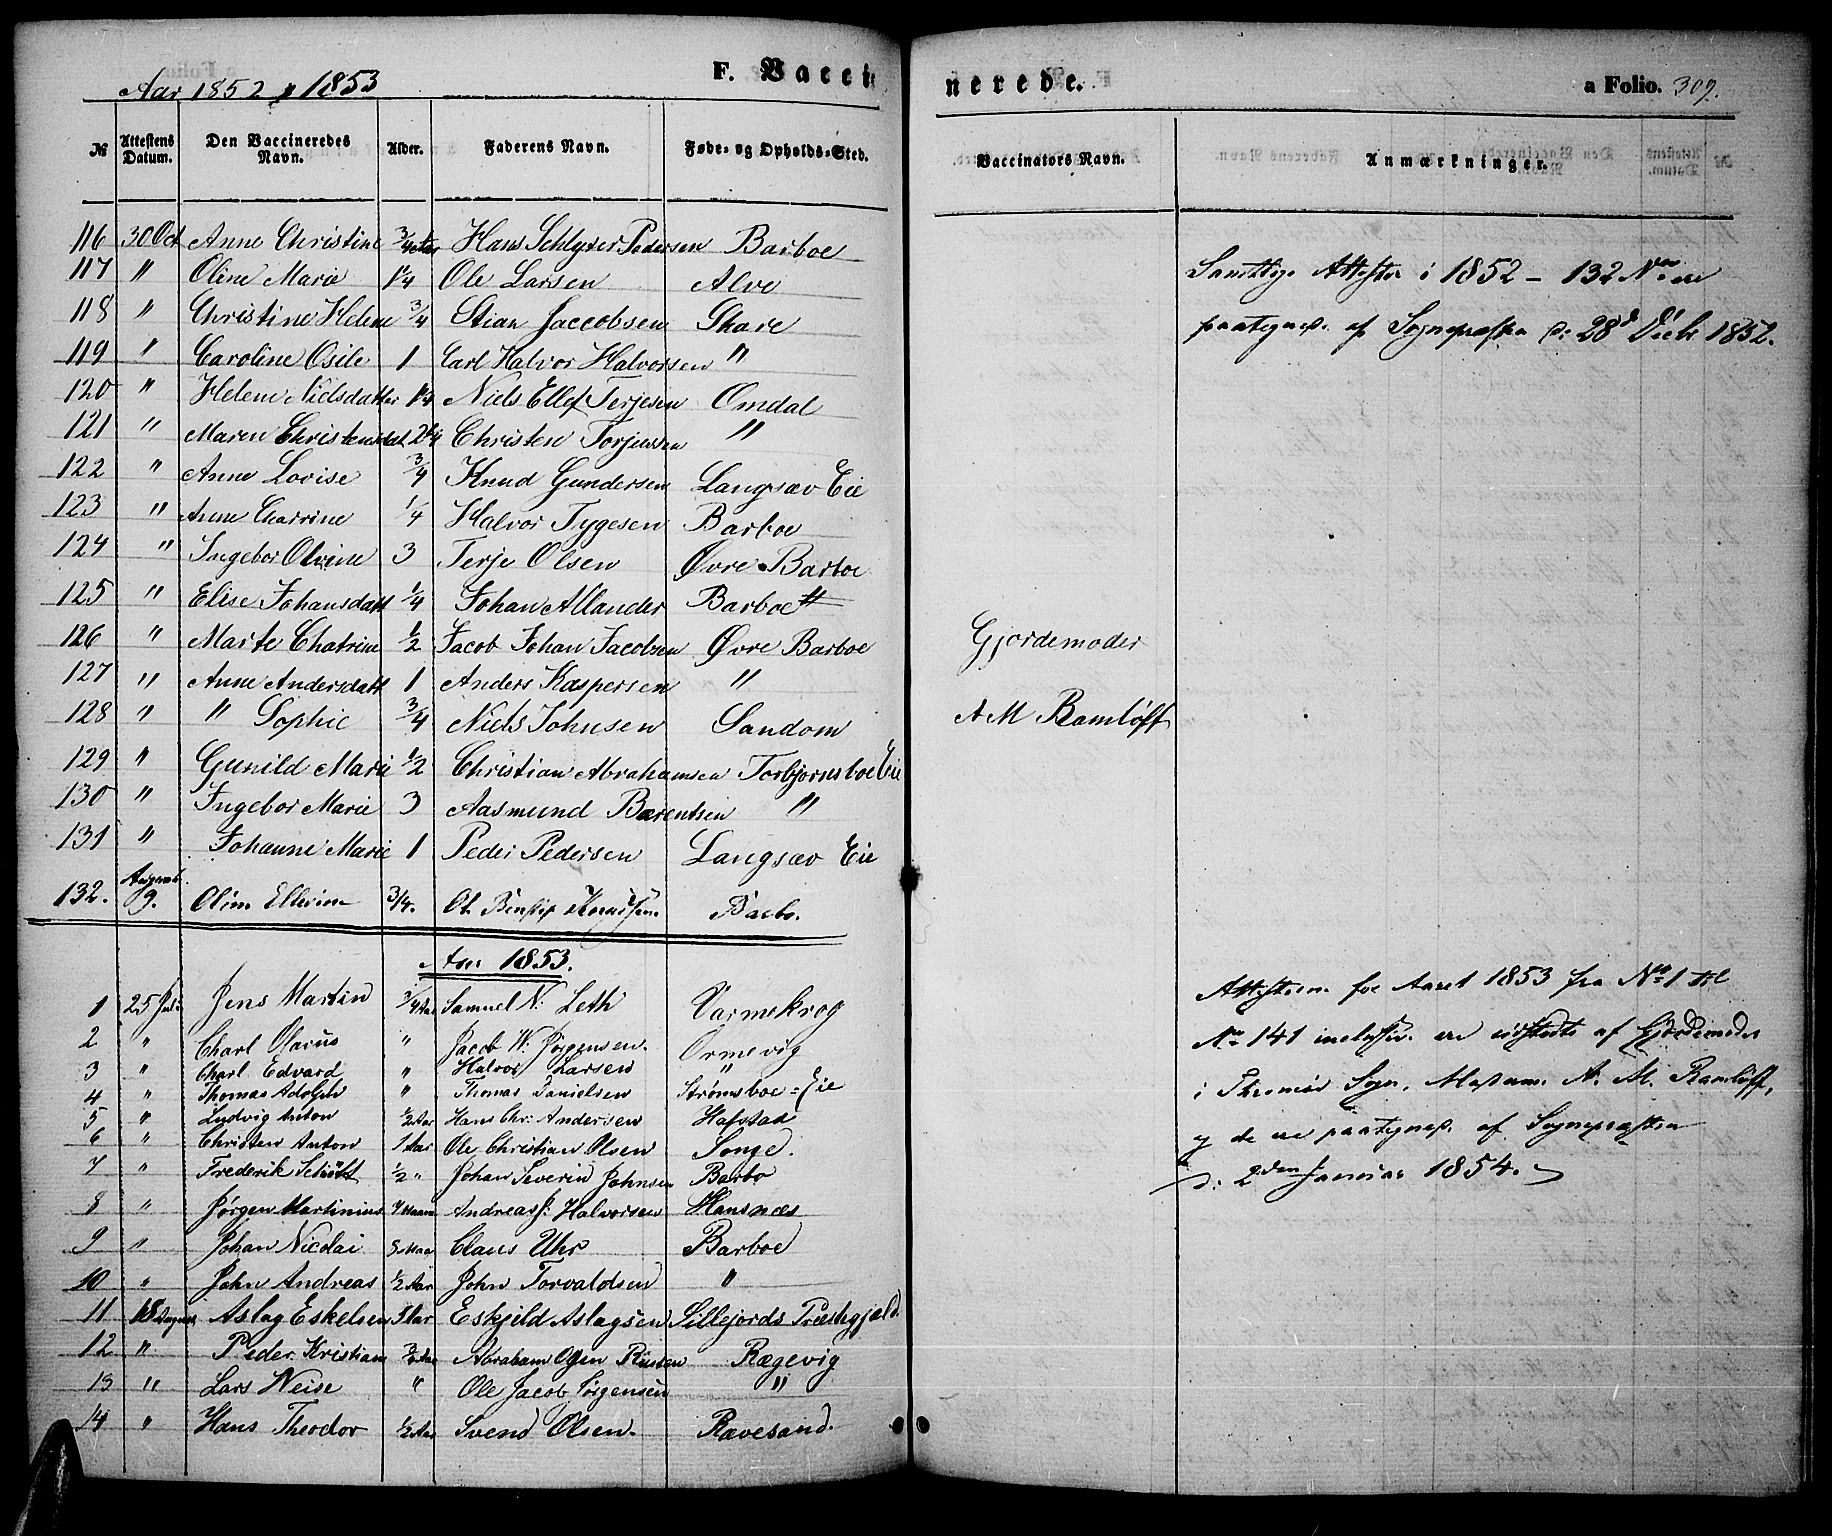 Aar 1852 & 1853 F. Vaccinerede. a Folio. 309.
№ Attestens Datum. Den Vaccineredes Navn. Alder. Faderens Navn. Føde- og Opholds-Sted. Vaccinators Navn. Anmærkninger.
116 30 Oct Anne Christine 3/4 Aar Hans Schlyter Pedersen Barboe
117 " Oline Marie 1 1/4 Ole Larsen Alve
118 " Christine Helene 3/4 Stian Jaccobsen Skare
119 " Caroline Osile 1 Carl Halvor Halvorsen "
120 " Helene Nielsdatter 1 1/4 Niels Ellef Terjesen Omdal
121 " Maren Christensdat 2 1/4 Christen Torjussen "
122 " Anne Lovise 3/4 Knud Gundersen Langsæv Eie
123 " Anne Chatrine 1/4 Halvor Tygesen Barboe
124 " Ingebor Olvine 3 Terje Olsen Øvre Barboe
125 " Elise Johansdatt 1/4 Johan Allander Barboe
126 " Marte Chatrine 1/2 Jacob Johan Jacobsen Øvre Barboe
127 " Anne Andersdatt 1 Anders Kaspersen "
128 " " Sophie 3/4 Niels Johnsen Sandom
129 " Gunild Marie 1/2 Christian Abrahamsen Torbjornsboe Eie
130 " Ingebor Marie 3 Aasmund Barentsen "
131 " Johanne Marie 1 Peder Pedersen Langsæv Eie
132. 9. Oline Ellevine 3/4. Ol. Knudsen. Barbo.
Aar 1853.
1 25 Juli Jens Martin 3/4 Aar Samuel N: Leth Varmekrog
2 " Charl Olaves " Jacob W: Jørgensen. Ormevig
3 " Charl Edvard " Halvor Larsen "
4 " Thomas Adolph " Thomas Danielsen Strømsboe=Eie
5 " Ludvig Anton 1/2 Aar Hans Chr: Andersen Hafstad
6 " Christen Anton 1 Aar Ole Christian Olsen Songe.
7 " Frederik Schütt 1/2 " Johan Severin Johnsen Barbo
8 " Jørgen Martinius 7 Maan Andreas J: Halvorsen Hansnæs
9 " Johan Nicolai 5 Maa Claus Uhr Barboe
10 " John Andreas 1/2 Aar John Torvaldsen "
11 18 August Aslag Eskelsen 5 Aar Eskjeld Aslagsen Sillejords Præstegjeld.
12 " Peder Kristian 3/4 Aar Abraham Rægevig
13 " Lars Neise " Ole Jacob Jørgensen "
14 " Hans Theodor 1/2 Aar Svend Olsen. Ravesand.
Gjordemoder
A M Ramløff
Samtlige Attester i 1852 – 132 No ere
paategnede af Sognepræsten d: 28d Decbr 1852.
Attesterne for Aaret 1853 fra No 1 til
No 141 inclusive ere udstedte af Gjordemoder
i Tromø Sogn, Madam A. M. Ramløff,
og de ere paategnede af Sognepræsten
d: 2den Januar 1854.